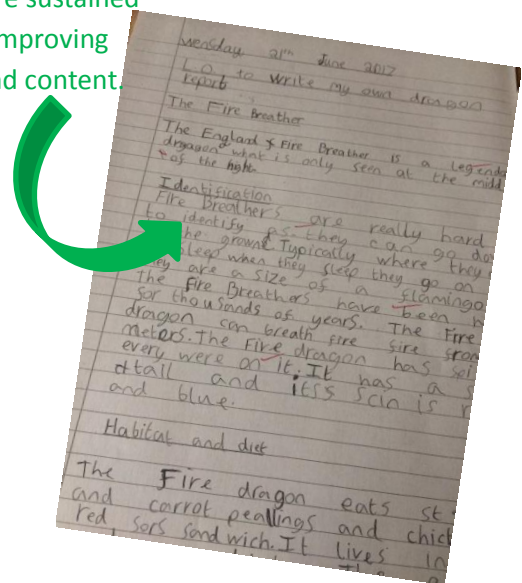 re sustained
mproving
nd content.
Wensday 21th June 2017
L.O. to write my own dragon
report
The Fire Breather
The England Fire Breather is a legend
dragon what is only seen at the midd
of the night.
Identification
Fire Breathers are really hard
to identify as they can go do
the ground Typically where they
sleep when they sleep they go on
they are a size of a flamingo
The Fire Breathers have been h
for thousands of years. The Fire
dragon can breath fire fire from
meters. The Fire dragon has spi
every were on it. It has a s
tall and itss scin is r
and blue.
Habitat and diet
The Fire dragon eats st
and carrot peallings and chic
red sors sandwich. It lives in